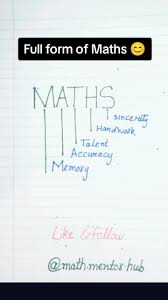 Full form of Maths 😊
MATHS
Sincerity
Hardwork
Talent
Accuracy
Memory
Like & Follow
@math.mentor.hub